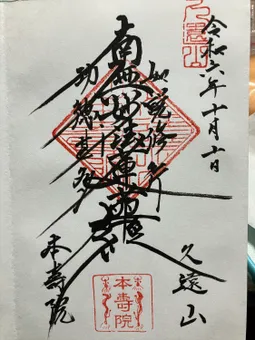 令和六年十月十日
久遠山
如説修行
南無妙法蓮華経
功徳甚多
久遠山
本壽院
本壽院